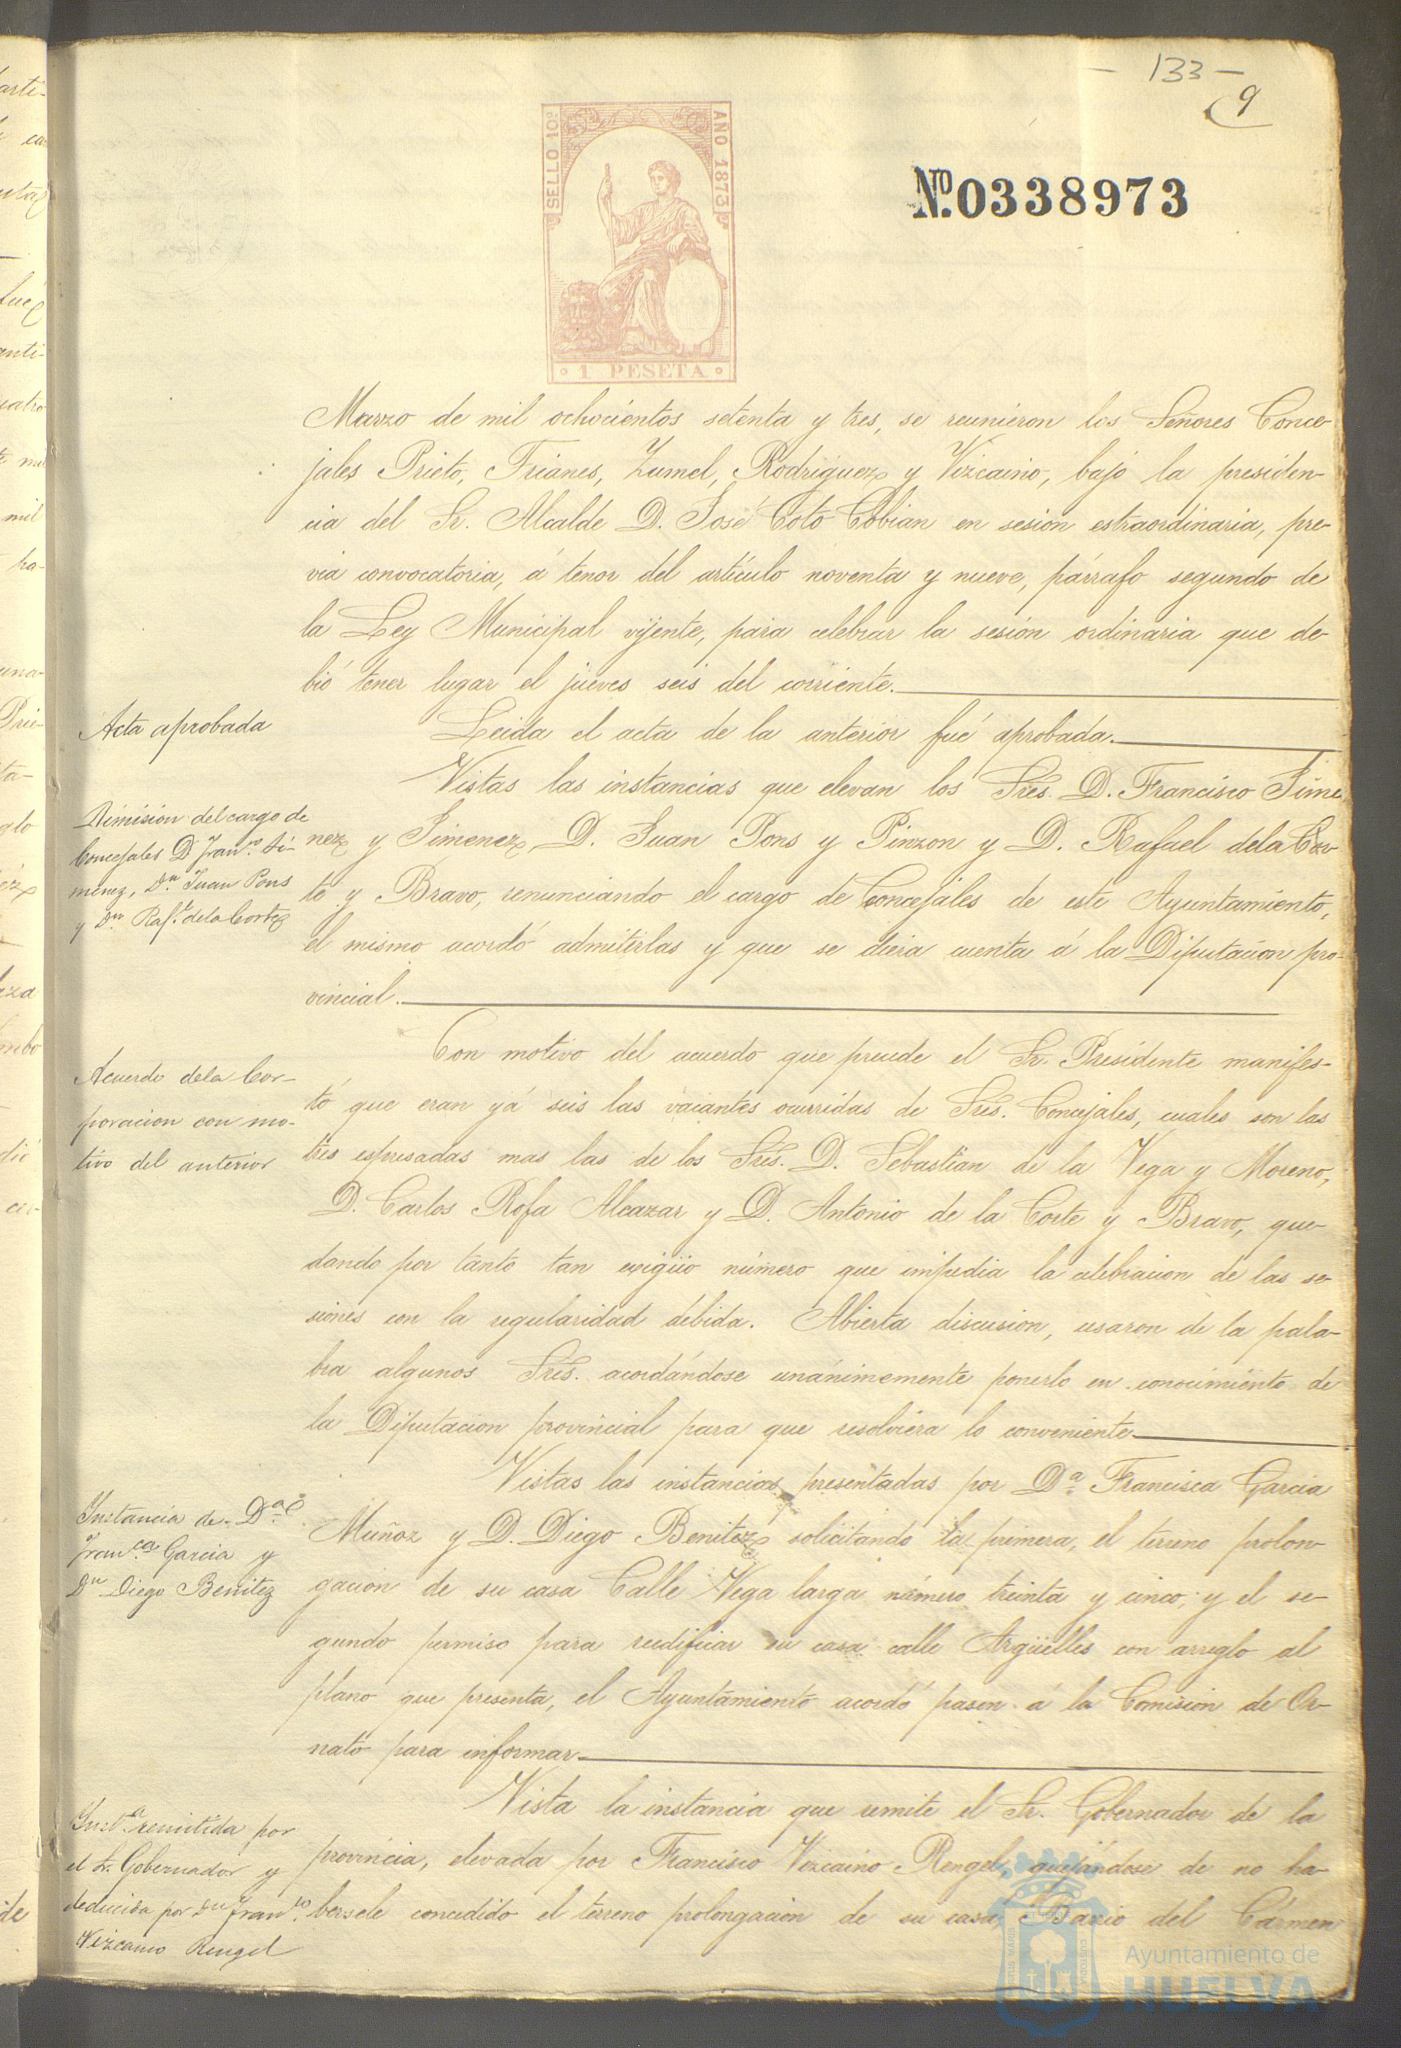 - 133 -
9
SELLO 10º
AÑO 1873
Nº. 0338973
· 1 PESETA ·
Marzo de mil ochocientos setenta y tres, se reunieron los Señores Conce-
jales Prieto, Trianes, Zumel, Rodriguez y Vizcaino, bajo la presiden-
cia del Sr. Alcalde D. José Coto Cobian en sesion estraordinaria, pre-
via convocatoria, á tenor del artículo noventa y nueve, párrafo segundo de
la Ley Municipal vijente, para celebrar la sesión ordinaria que de-
bió tener lugar el jueves seis del corriente.
Acta aprobada
Leida el acta de la anterior fué aprobada.
Vistas las instancias que elevan los Sres. D. Francisco Jime
nez y Jimenez, D. Juan Pons y Pinzon y D. Rafael dela Cor
te y Bravo, renunciando el cargo de Concejales de este Ayuntamiento,
el mismo acordó admitirlas y que se diera cuenta á la Diputacion pro-
vincial.
Dimision del cargo de
Concejales D Fran.co Ji-
menez, D.n Juan Pons
y D.n Raf.l de la Corte
Con motivo del acuerdo que precede el Sr. Presidente manifes-
tó que eran yá seis las vacantes ocurridas de Sres. Concejales, cuales son las
tres espresadas mas las de los Sres. D. Sebastian de la Vega y Moreno,
D. Carlos Rofa Alcazar y D. Antonio de la Corte y Bravo, que-
dando por tanto tan exigüo número que impedia la celebracion de las se-
siones con la regularidad debida. Abierta discusion, usaron de la pala-
bra algunos Sres. acordándose unánimemente ponerlo en conocimiento de
la Diputacion provincial para que resolviera lo conveniente
Acuerdo dela Cor-
poracion con mo-
tivo del anterior
Vistas las instancias presentadas por D.a Francisca Garcia
Muñoz y D. Diego Benitez solicitando la primera, el terreno prolon-
gacion de su casa Calle Vega larga número treinta y cinco, y el se-
gundo permiso para reedificar su casa calle Argüelles con arreglo al
plano que presenta, el Ayuntamiento acordó pasen á la Comision de Or-
nato para informar
Instancia de D.a
Fran.ca Garcia y
D.n Diego Benitez
Vista la instancia que remite el Sr. Gobernador de la
provincia, elevada por Francisco Vizcaino Rengel, quejándose de no ha-
bersele concedido el terreno prolongacion de su casa, Barrio del Cármen
Inst.a remitida por
el Sr. Gobernador y
deducida por D.n Fran.co
Vizcaino Rengel
Ayuntamiento de
HUELVA